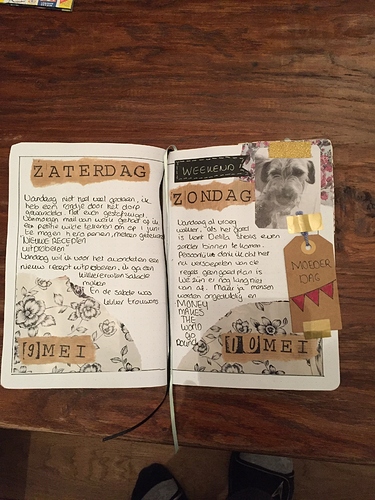 ZATERDAG
Vandaag niet heel veel gedaan, ik
heb een rondje door het dorp
gewandeld. Net even geschreeuwd.
Vanmorgen mail van
petitie wilde tekenen om op 1 juni
te mogen heropenen, meteen getekend
NIEUWE RECEPTEN
UITPROBEREN
Vandaag wil ik voor het avondeten een
nieuw recept uitproberen, ik ga een
salade
maken
En de salade was
lekker trouwens
[9] MEI
WEEKEND!
ZONDAG
Vandaag al vroeg
wakker, als het goed
is komt Delta thuis even
zonder binnen te komen.
Persoonlijk denk ik dat het
nu versoepelen van de
regels geen goed plan is
We zijn er nog lang niet
van af. Maar ja, mensen
worden ongeduldig en
MONEY
MAKES
THE
WORLD
GO
ROUND
[10] MEI
MOEDER
DAG